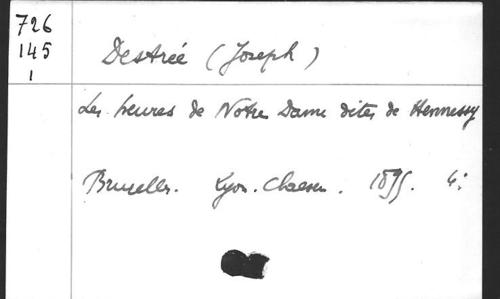 726
145
1
Destrée (Joseph)
Les heures de Notre Dame dites de Hennessy
Bruxelles. Lyon-Claesen. 1895. 4: